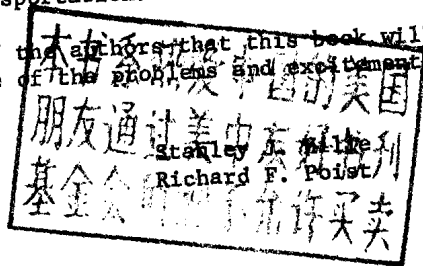 sportation
the authors that this book will
of the problems and excitement
Stanley J. Hille
Richard F. Poist
本书系 中国的美国
朋友通过美中 利
基金会 不允许买卖